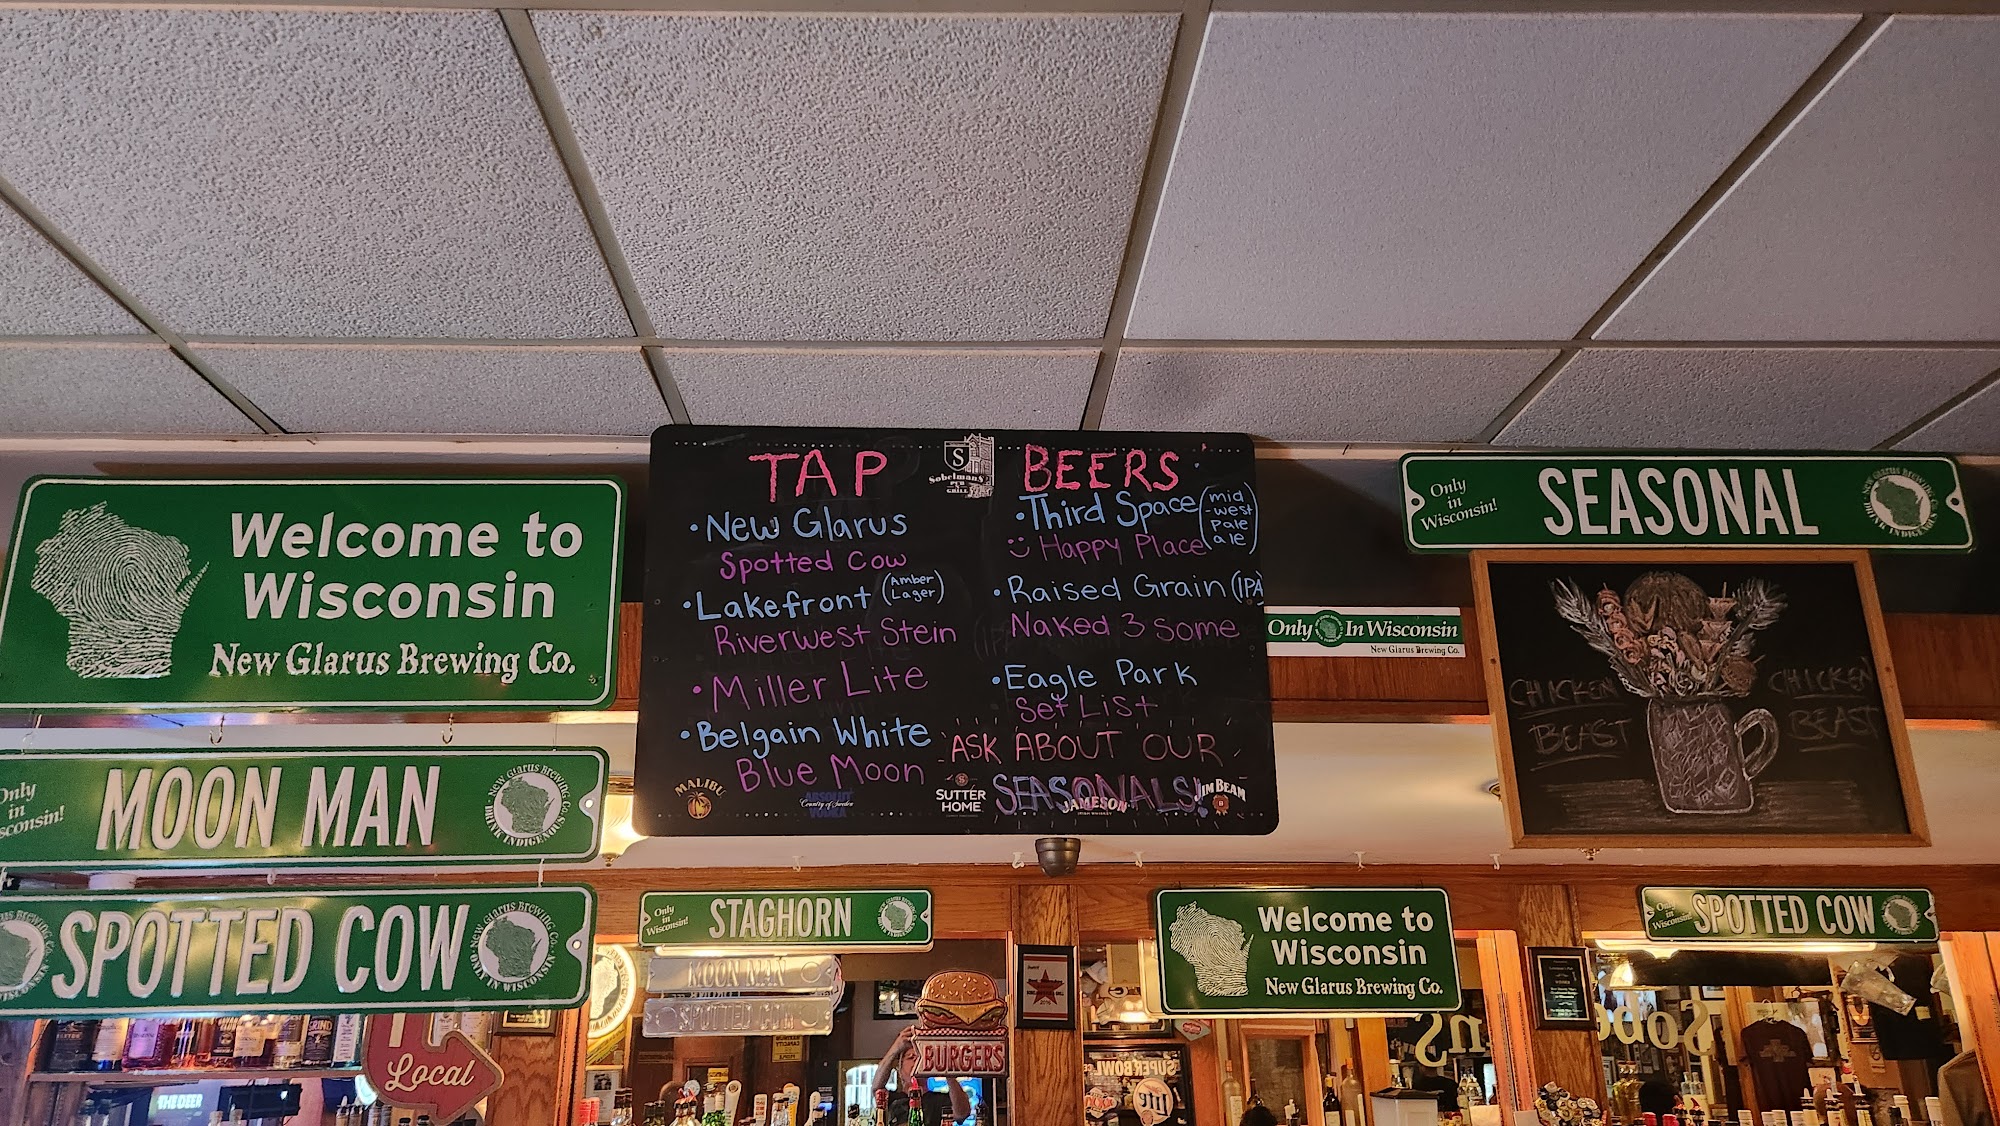 Welcome to
Wisconsin
New Glarus Brewing Co.
Only
in
Wisconsin!
MOON MAN
New Glarus Brewing Co.
DRINK INDIGENOUS
SPOTTED COW
New Glarus Brewing Co.
ONLY IN WISCONSIN
TAP BEERS
S
Sobelman's
PUB
GRILL
• New Glarus
Spotted Cow
• Lakefront (Amber
Lager)
Riverwest Stein
• Miller Lite
• Belgain White
Blue Moon
• Third Space (mid
-west
pale
ale)
Happy Place
• Raised Grain (IPA
Naked 3 Some
• Eagle Park
Set List
ASK ABOUT OUR
SEASONALS!
MALIBU
ABSOLUT
Country of Sweden
VODKA
SUTTER
HOME
JAMESON
IRISH WHISKEY
JIM BEAM
Only
in
Wisconsin!
SEASONAL
New Glarus Brewing Co.
DRINK INDIGENOUS
Only In Wisconsin
New Glarus Brewing Co.
CHICKEN
BEAST
CHICKEN
BEAST
Only
in
Wisconsin!
STAGHORN
MOON MAN
SPOTTED COW
Welcome to
Wisconsin
New Glarus Brewing Co.
Only
in
Wisconsin!
SPOTTED COW
Local
BURGERS
THE DEER
SUPERBOWL
Lite